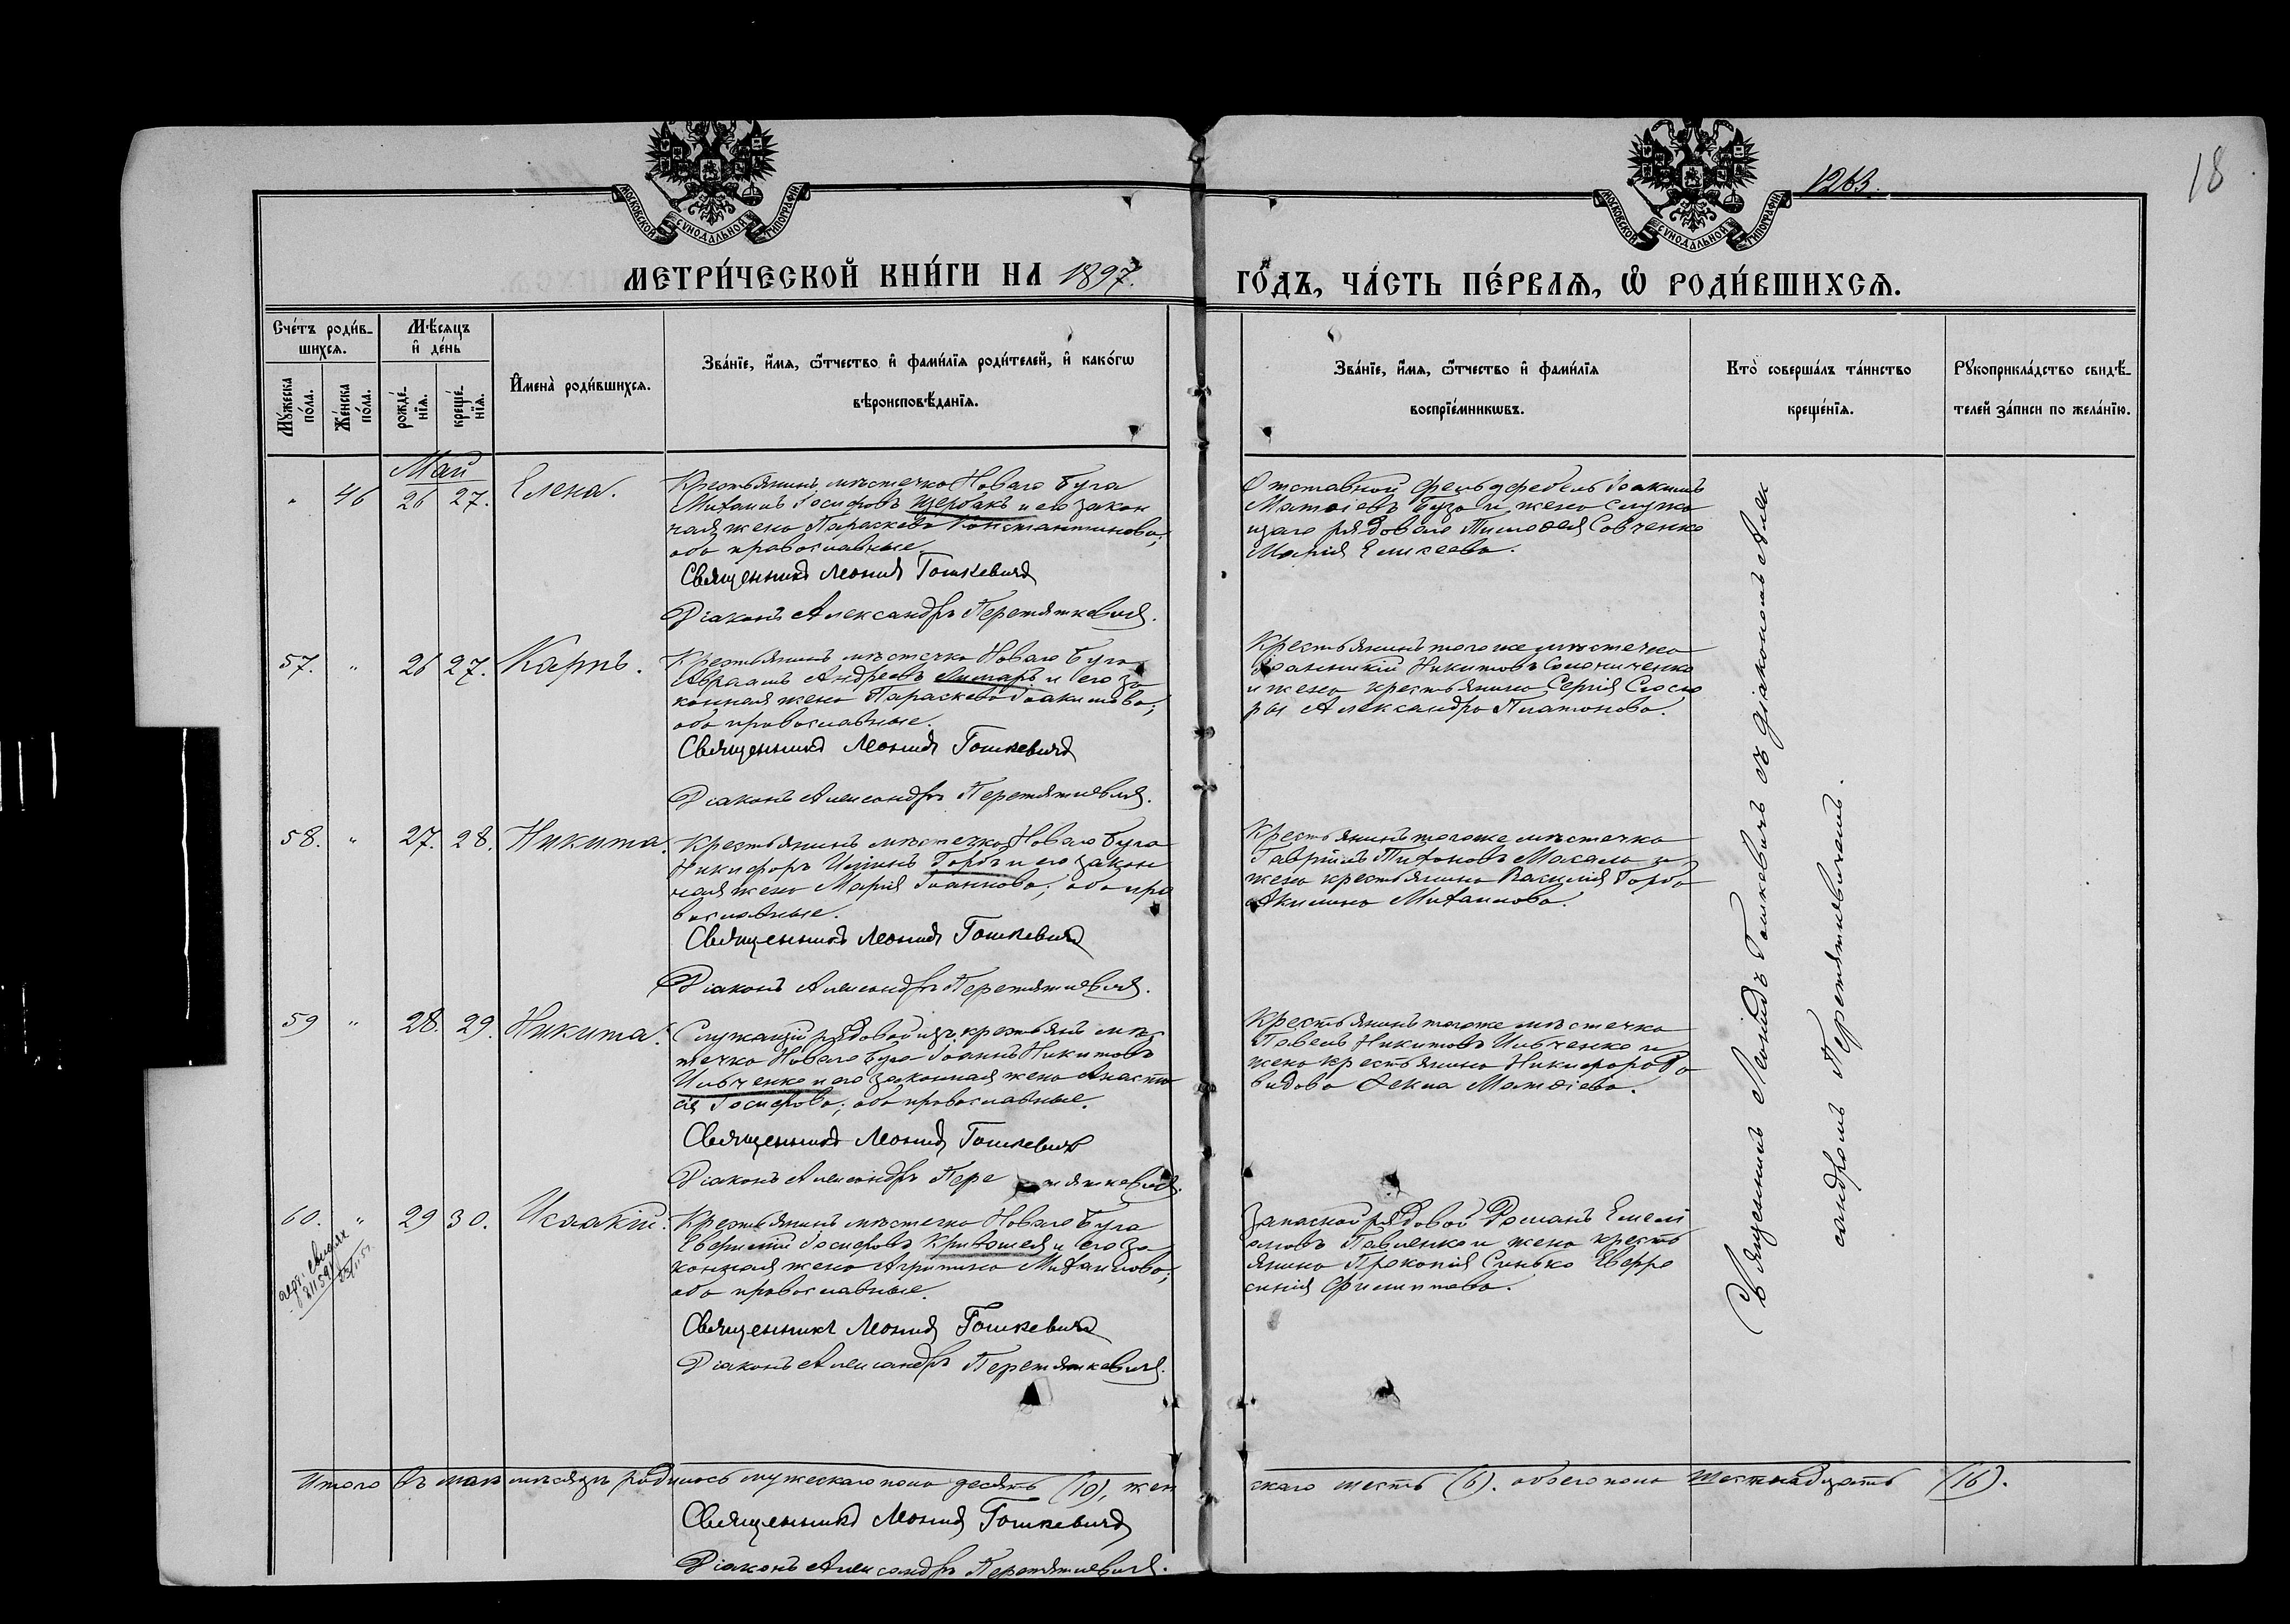 МОСКОВСКОЙ СУНОДАЛЬНОЙ ТИПОГРАФІИ
МОСКОВСКОЙ СУНОДАЛЬНОЙ ТИПОГРАФІИ
1263.
18
МЕТРИ́ЧЕСКОЙ КНИ́ГИ НА 1897.
ГО́ДЪ, ЧА́СТЬ ПЕ́РВАѦ, Ѡ РОДИ́ВШИХСѦ.
Сче́тъ роди́в-
шихсѧ.
Мѣ́сѧцъ
и҆ де́нь
Мꙋ́жеска
по́ла.
Же́нска
по́ла.
рожде́-
нїѧ.
креще́-
нїѧ.
И҆мена̀ роди́вшихсѧ.
Зва́нїе, и҆́мѧ, ѻ҆́тчество и҆ фами́лїѧ роди́телей, и҆ како́гѡ
вѣроисповѣ́данїѧ.
Зва́нїе, и҆́мѧ, ѻ҆́тчество и҆ фами́лїѧ
воспрїе́мникѡвъ.
Кто̀ соверша́лъ та́инство
креще́нїѧ.
Рꙋкоприкла́дство свидѣ́-
телей за́писи по жела́нїю.
Май
" 46 26 27. Елена.
Крестьянинъ мѣстечка Новаго Буга
Михаилъ Іосифовъ Щербакъ и его закон
ная жена Параскева Константинова;
оба православные.
Священникъ Леонидъ Гошкевичъ
Діаконъ Александръ Перетяткевичъ.
Отставной фельдфебель Іоакимъ
Матѳіевъ Буза и жена служа
щаго рядоваго Тимоѳея Савченко
Марія Елисеева.
57. " 26 27. Карпъ.
Крестьянинъ мѣстечка Новаго Буга
Авраамъ Андреевъ Лымарь и его за
конная жена Параскева Іоакимова;
оба православные.
Священникъ Леонидъ Гошкевичъ
Діаконъ Александръ Перетяткевичъ.
Крестьянинъ того же мѣстечка
Іоанникій Никитовъ
и жена крестьянина Сергія Слюса
ры Александра Платонова.
58. " 27. 28. Никита.
Крестьянинъ мѣстечка Новаго Буга
Никифоръ Ильинъ Горбъ и его закон
ная жена Марія Іоаннова; оба пра
вославные.
Священникъ Леонидъ Гошкевичъ
Діаконъ Александръ Перетяткевичъ.
Крестьянинъ того же мѣстечка
Гавріилъ Тихоновъ и
жена крестьянина Василія Горба
Акилина Михаилова.
59 " 28. 29. Никита.
Служащій рядовой изъ крестьянъ мѣс
течка Новаго Буга Іоаннъ Никитовъ
Ильченко и его законная жена Анаста
сія Іосифова; оба православные.
Священникъ Леонидъ Гошкевичъ
Діаконъ Александръ Пере тяткевичъ.
Крестьянинъ того же мѣстечка
Павелъ Никитовъ Ильченко и
жена крестьянина Никифора Да
видова Ѳекла Матѳіева.
60. " 29 30. Исаакій.
Крестьянинъ мѣстечка Новаго Буга
Евфимій Іосифовъ Кривошея и его за
конная жена Агрипина Михаилова;
оба православные.
Священникъ Леонидъ Гошкевичъ
Діаконъ Александръ Перетяткевичъ.
Запасной рядовой Романъ Емели
ановъ Павленко и жена кресть
янина Прокопія Синько Евфро
синія Филиппова.
Священникъ Леонидъ Гошкевичъ съ діакономъ Алек
сандромъ Перетяткевичемъ.
Итого въ маѣ мѣсяцѣ родилось мужескаго пола десять (10), жен
скаго шесть (6). обоего пола шестнадцать (16).
Священникъ Леонидъ Гошкевичъ
Діаконъ Александръ Перетяткевичъ.